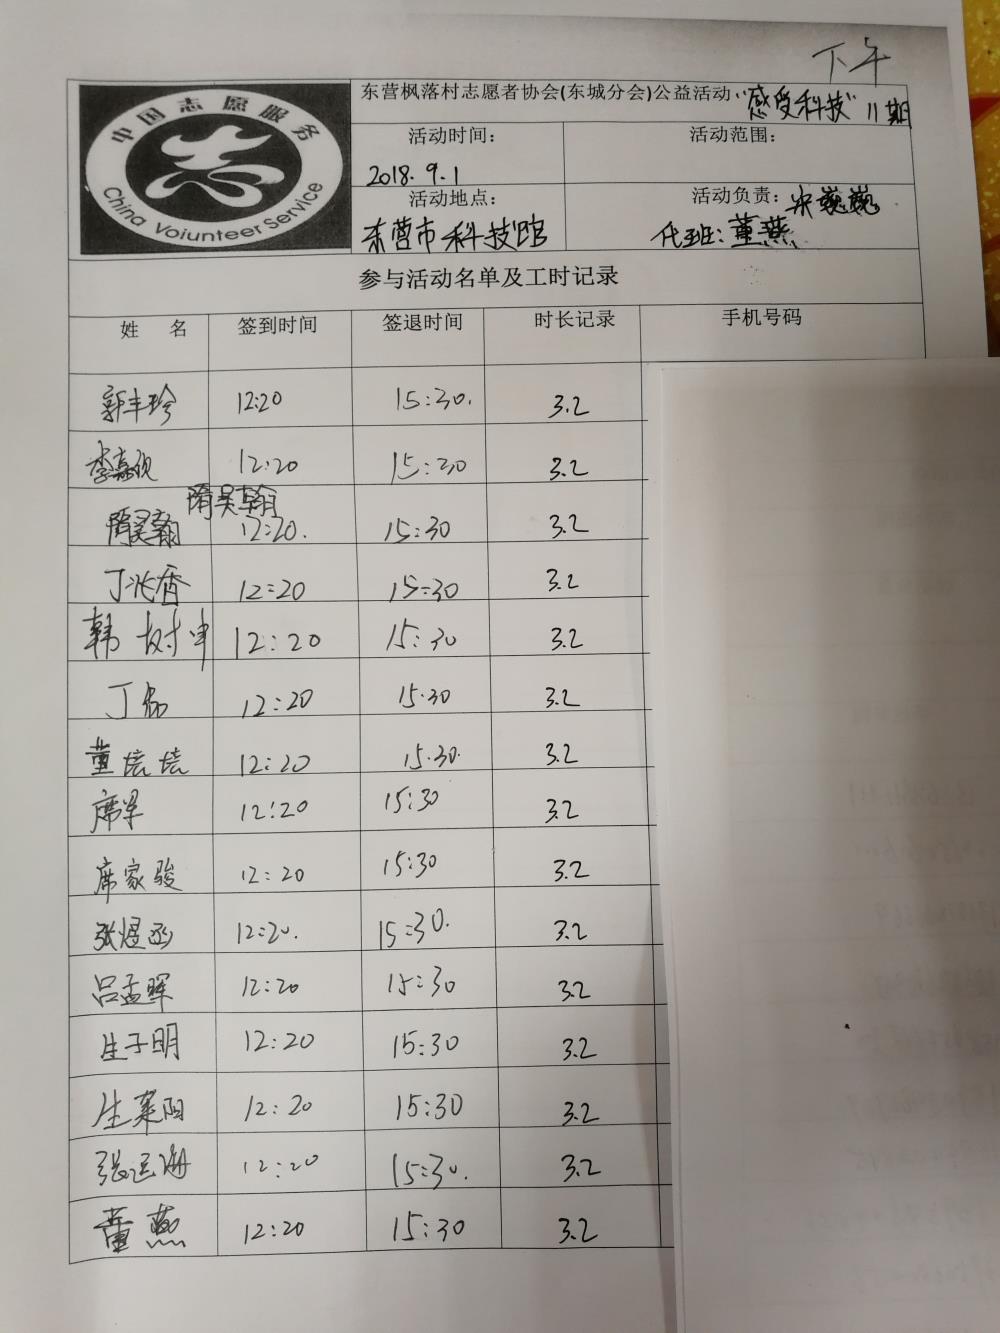 下午
中国志愿服务
China Voiunteer Service
东营枫落村志愿者协会(东城分会)公益活动"感受科技"11期
活动时间： 活动范围：
2018.9.1
活动地点： 活动负责：宋巍巍
东营市科技馆 代班：董燕
参与活动名单及工时记录
姓 名 签到时间 签退时间 时长记录 手机号码
靳丰珍 12:20 15:30. 3.2
李嘉砚 12:20 15:30 3.2
隋昊翰
隋昊翰 12:20. 15:30 3.2
丁兆香 12:20 15:30 3.2
韩树申 12:20 15:30 3.2
丁磊 12:20 15.30 3.2
董培培 12:20 15.30. 3.2
席军 12:20 15:30 3.2
席家骏 12:20 15:30 3.2
张煜函 12:20. 15:30. 3.2
吕孟晖 12:20 15:30 3.2
生子明 12:20 15:30 3.2
生莱阳 12:20 15:30 3.2
张运海 12:20 15:30. 3.2
董燕 12:20 15:30 3.2